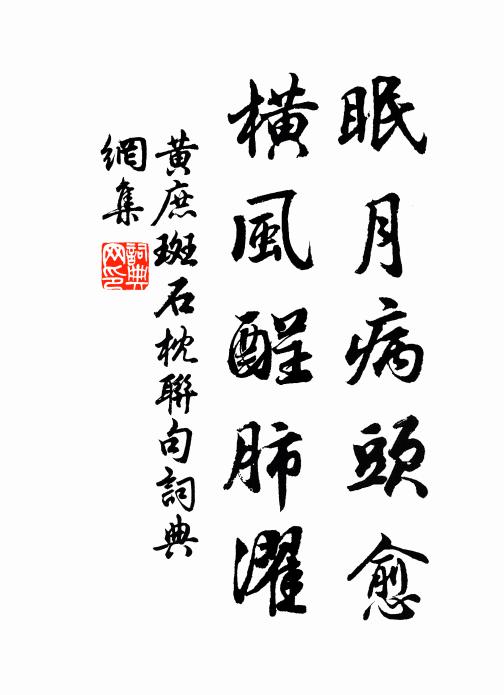 眠月病頭愈
橫風酲肺濯
黃庶斑石枕聯句詞典
網集
詞典網印